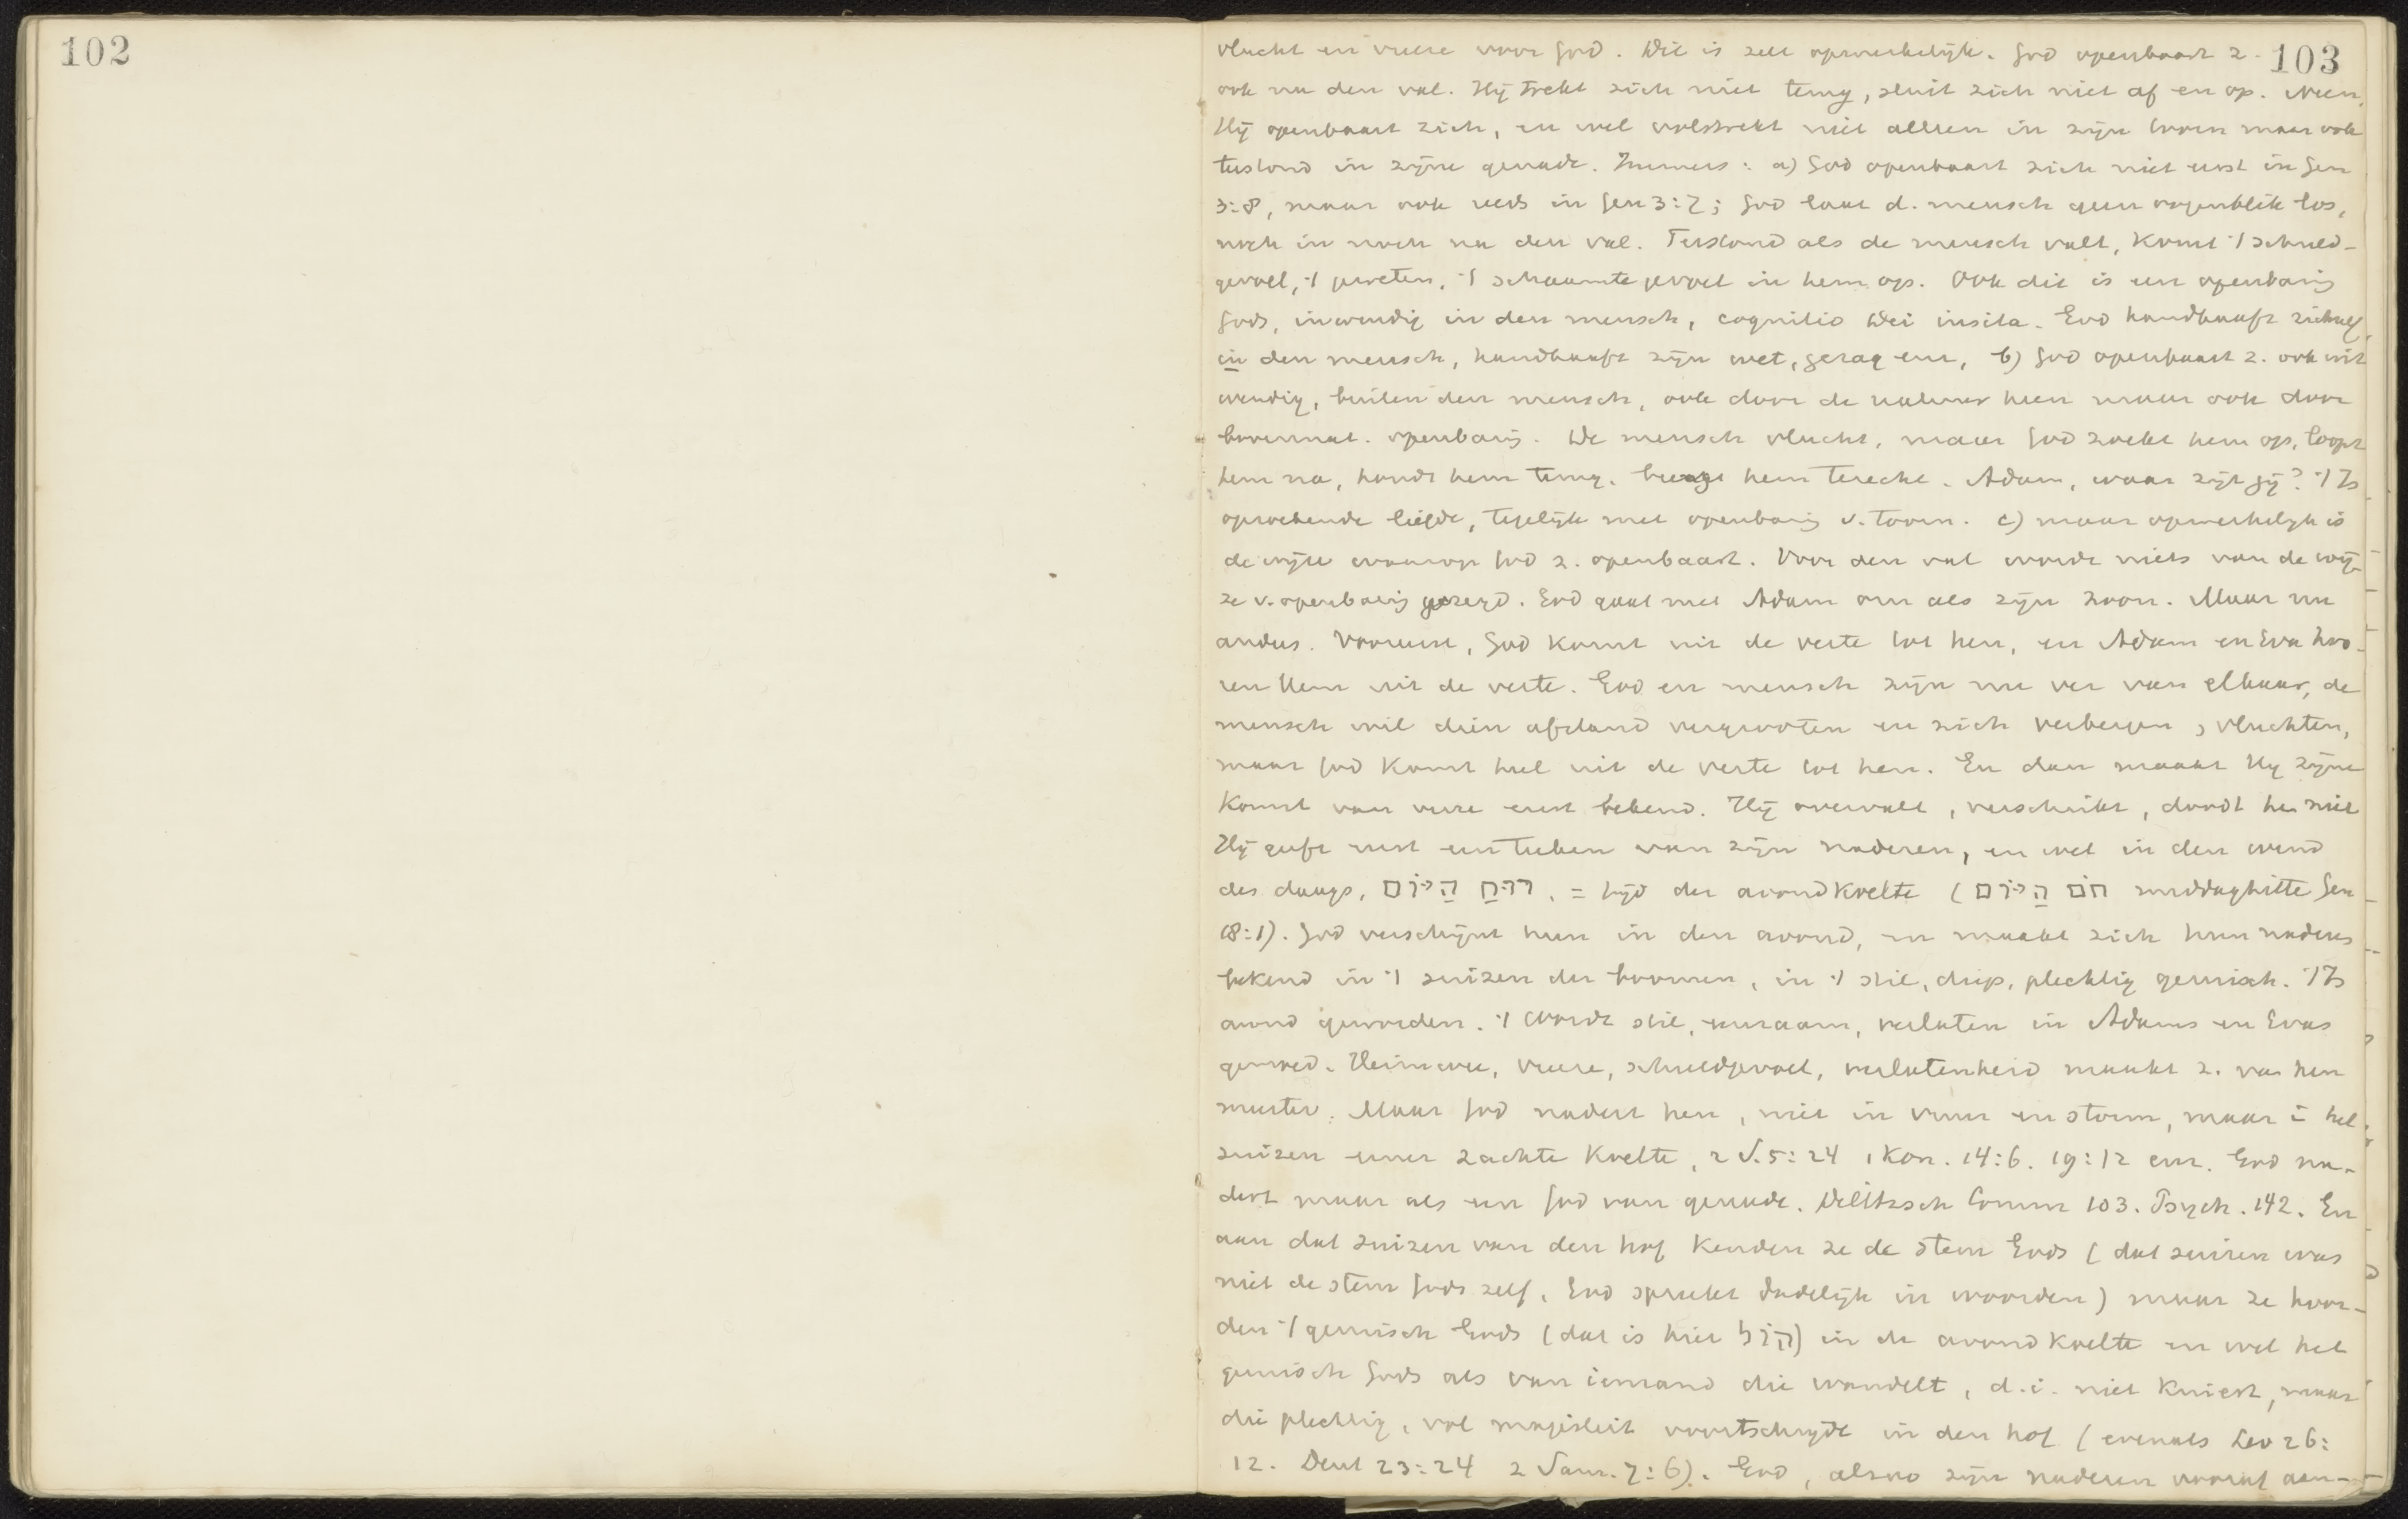 102
103
vlucht en vreeze voor God. Dit is zeer opmerkelijk. God openbaart z.
ook na den val. Hij trekt zich niet terug, sluit zich niet af en op. Neen,
Hij openbaart zich, en wel volstrekt niet alleen in zijn toorn maar ook
terstond in zijne genade. Immers: a) God openbaart zich niet eerst in Gen
3:8, maar ook reeds in Gen 3:7; God laat d. mensch geen oogenblik los,
noch in noch na den val. Terstond als de mensch valt, komt 't schuld-
gevoel, 't geweten, 't schaamtegevoel in hem op. Ook dit is een openbaring
Gods, inwendig in den mensch, cognitio Dei insita. God handhaaft zichzelf
in den mensch, handhaaft zijn wet, gezag enz. b) God openbaart z. ook uit
wendig, buiten den mensch, ook door de natuur heen maar ook door
bovennat. openbaring. De mensch vlucht, maar God zoekt hem op, loopt
hem na, houdt hem terug, brengt hem terecht. Adam, waar zijt gij? 't Is
opzoekende liefde, tegelijk met openbaring v. toorn. c) maar opmerkelijk is
de wijze waarop God z. openbaart. Voor den val wordt niets van de wij-
ze v. openbaring gezegd. God gaat met Adam om als zijn zoon. Maar nu
anders. Vooreerst, God komt uit de verte tot hen, en Adam en Eva hoo-
ren Hem uit de verte. God en mensch zijn nu ver van elkaar, de
mensch wil dien afstand vergrooten en zich verbergen, vluchten,
maar God komt heel uit de verte tot hen. En dan maakt Hij zijne
komst van verre eerst bekend. Hij overvalt, verschrikt, doodt hen niet
Hij geeft eerst een teeken van zijn naderen, en wel in den wind
des daags, רוּחַ הַיּוֹם, = tijd der avondkoelte (חֹם הַיּוֹם middaghitte Gen
18:1). God verschijnt hun in den avond, en maakt zich hun naderes
bekend in 't suizen der boomen, in 't stil, diep, plechtig geruisch. 't Is
avond geworden. 't Wordt stil, eenzaam, verlaten in Adams en Evas
gemoed. Heimwee, vreeze, schuldgevoel, verlatenheid maakt z. van hen
meester. Maar God nadert hen, niet in vuur en storm, maar i het
suizen eener zachte koelte, 2 S. 5:24 1 Kon. 14:6. 19:12 enz. God na-
dert maar als een God van genade. Delitzsch Comm 103. Psych. 142. En
aan dat suizen van den hof kenden ze de stem Gods (dat suizen was
niet de stem Gods zelf, God spreekt dadelijk in woorden) maar ze hoor-
den 't geruisch Gods (dat is hier קוֹל) in de avondkoelte en wel het
geruisch Gods als van iemand die wandelt, d.i. niet kruist, maar
die plechtig, vol majesteit voortschrijdt in den hof (evenals Lev 26:
12. Deut 23:24 2 Sam. 7:6). God, alzoo zijn naderen vooraf aan-